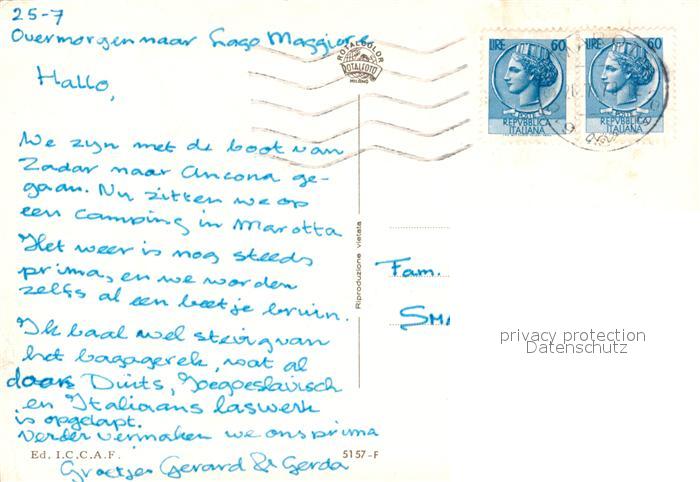 25-7
Overmorgen naar Lago Maggiore
Hallo,
We zijn met de boot van
Zadar naar Ancona ge-
gaan. Nu zitten we op
een camping in Marotta
Het weer is nog steeds
prima, en we worden
zelfs al een beetje bruin.
Ik baal wel stevig van
het bagagerek, wat al
door Duits, Joegoeslavisch
en Italiaans laswerk
is opgelapt.
Verder vermaken we ons prima
Groetjes Gerard & Gerda
Ed. I.C.C.A.F.
5157-F
Riproduzione vietata
ROTALCOLOR
ROTALFOTO
MILANO
LIRE 60
POSTE
REPVBBLICA
ITALIANA
LIRE 60
REPVBBLICA
ITALIANA
Fam.
privacy protection
Datenschutz